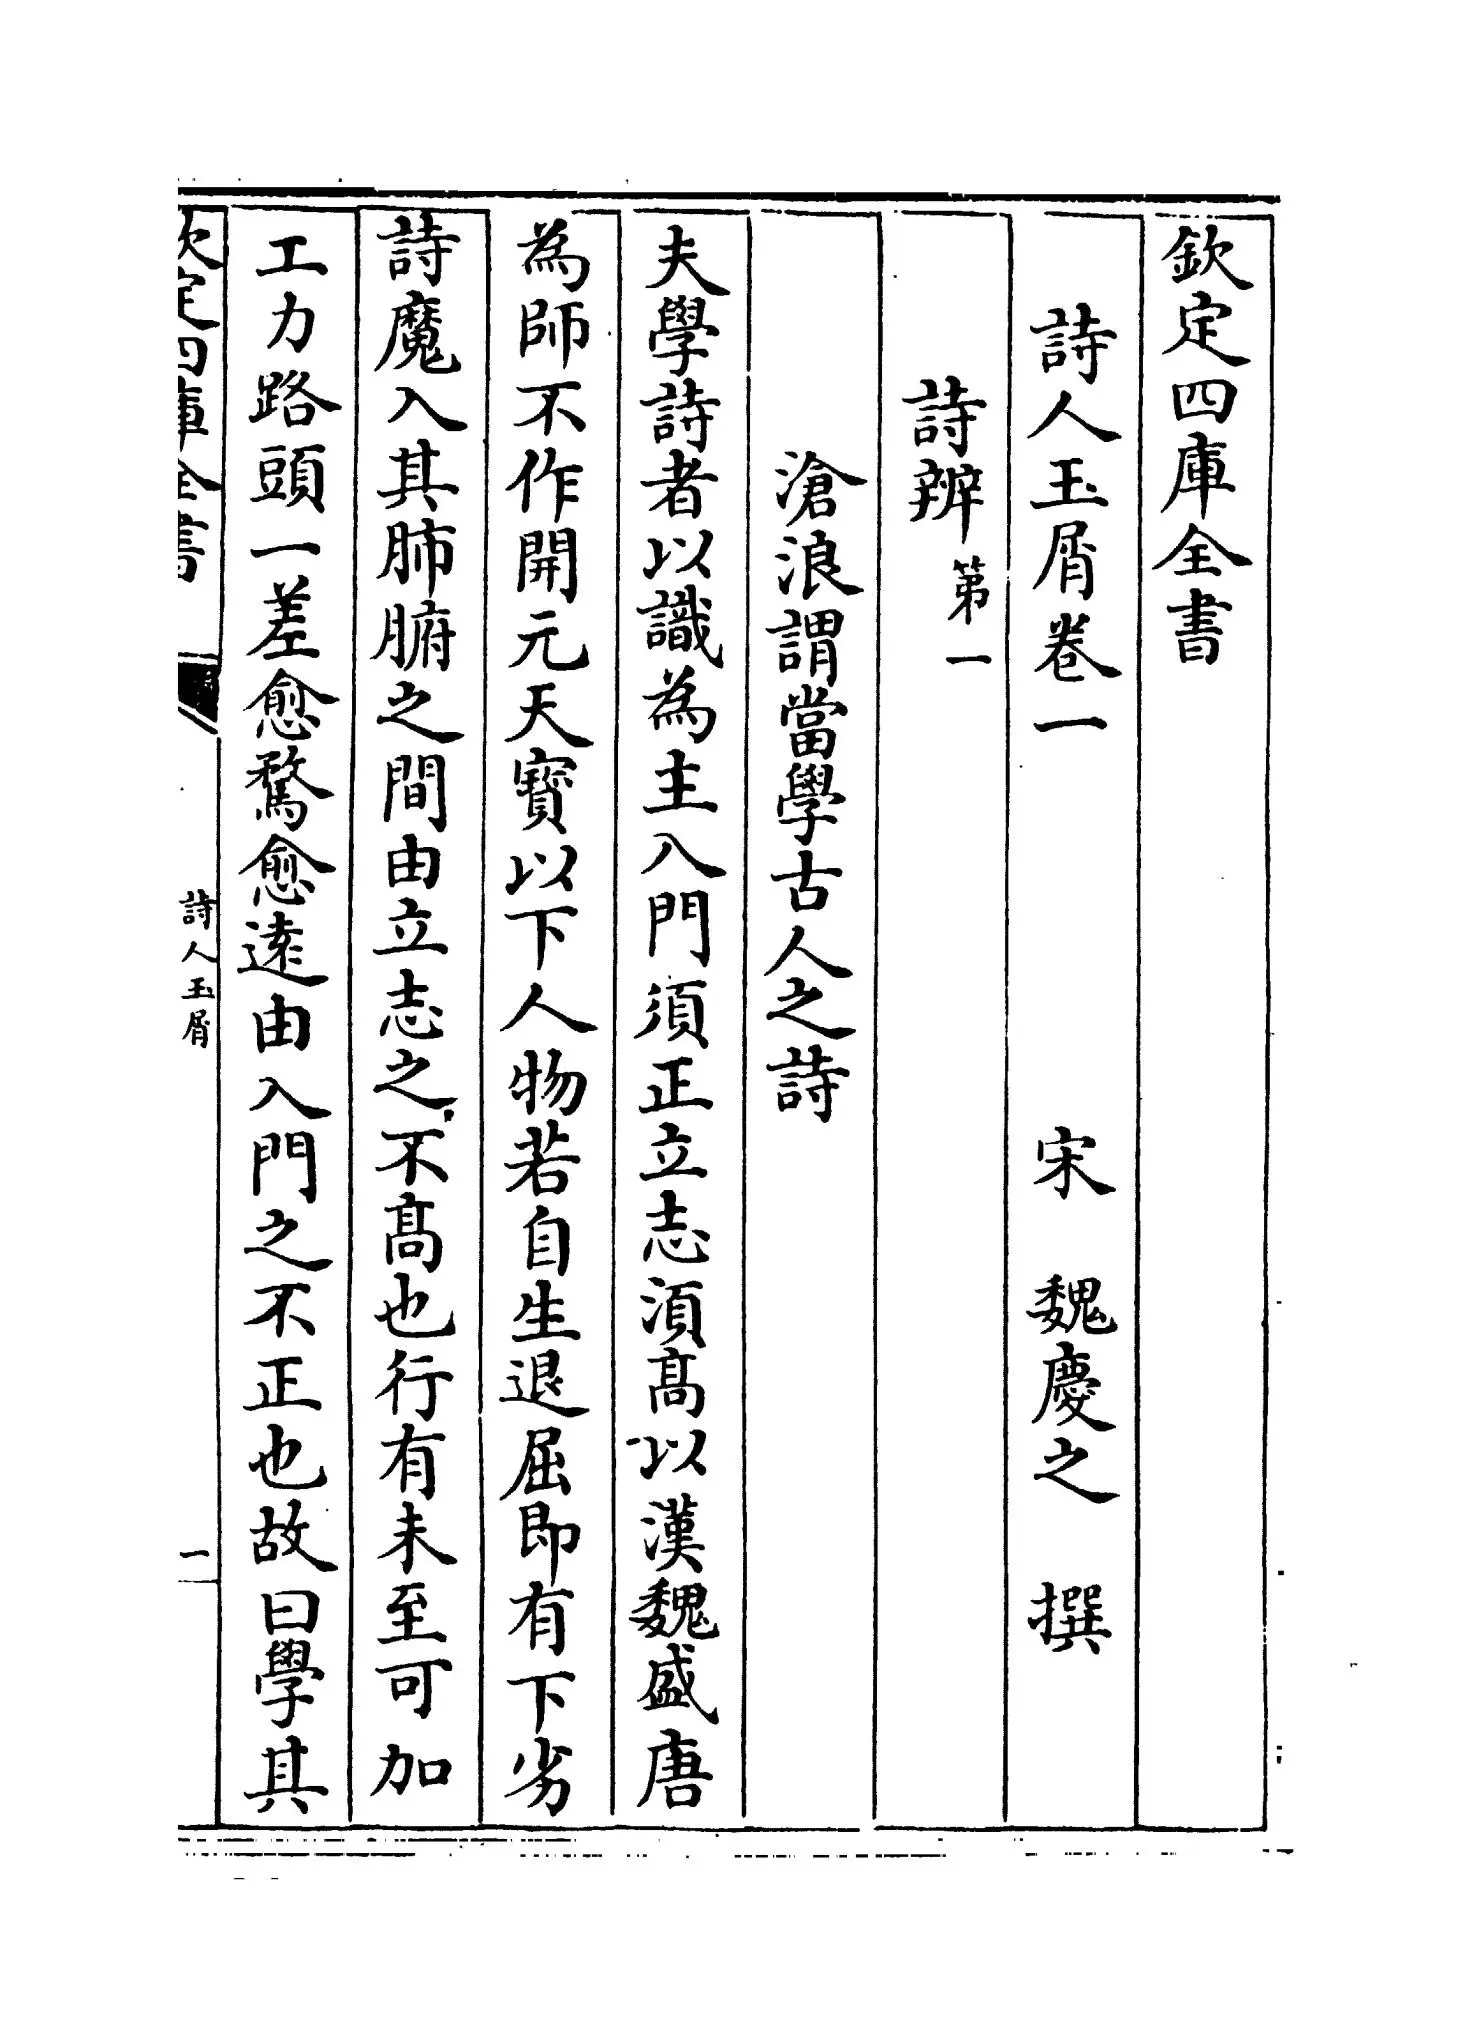 欽定四庫全書
詩人玉屑卷一
宋 魏慶之 撰
詩辨第一
滄浪謂當學古人之詩
夫學詩者以識為主入門須正立志須髙以漢魏盛唐
為師不作開元天寳以下人物若自生退屈即有下劣
詩魔入其肺腑之間由立志之不髙也行有未至可加
工力路頭一差愈騖愈逺由入門之不正也故曰學其
欽定四庫全書
詩人玉屑
一